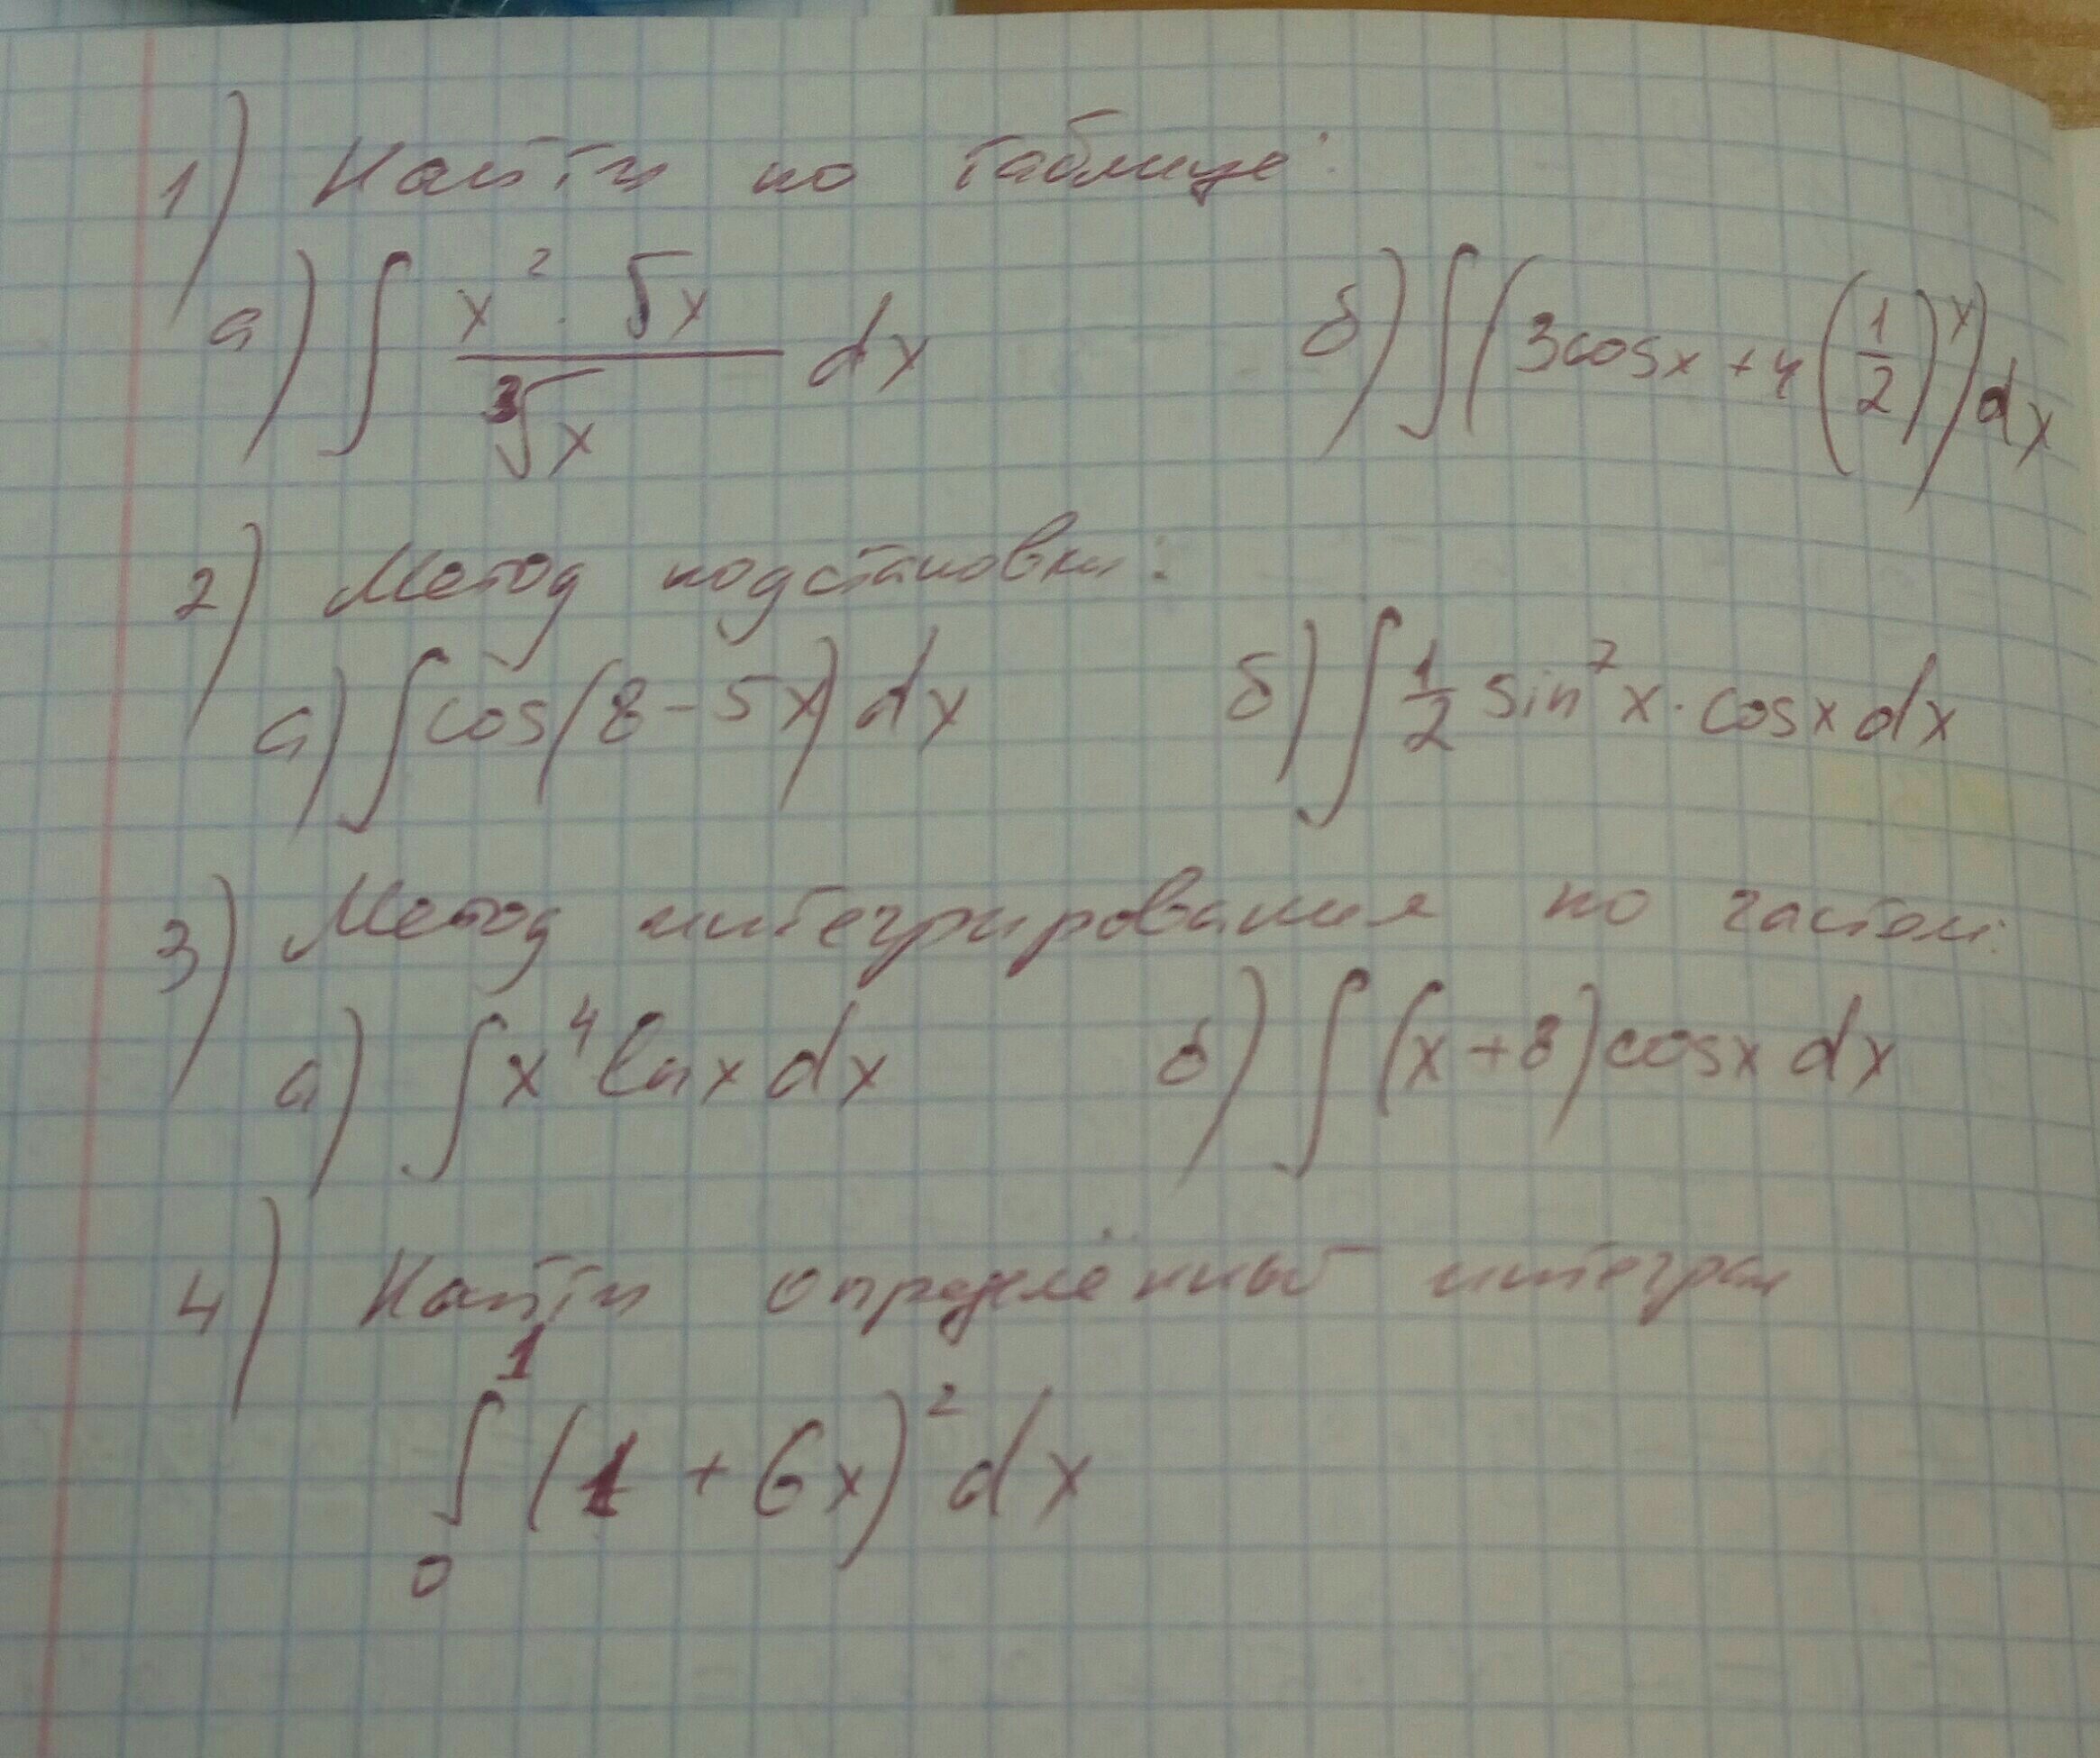 1) Найти по таблице:
а) ∫ (x² · √x) / ∛x dx б) ∫ (3cosx + 4(1/2)ˣ) dx
2) Метод подстановки:
а) ∫ cos(8 - 5x) dx б) ∫ 1/2 sin⁷x · cosx dx
3) Метод интегрирования по частям:
а) ∫ x⁴ lnx dx б) ∫ (x + 8) cosx dx
4) Найти определённый интеграл
∫₀¹ (1 + 6x)² dx